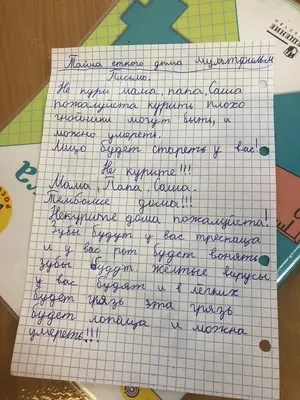 Тайна еткого дыма мультфильм
Письмо.
Не кури мама, папа, Саша
пожалуйста курить плохо
гнойники могут быть, и
можно умереть.
Лицо будет стареть у вас!
Не курите!!!
Мама, Папа, Саша.
Тембольше дома!!!
Некурите дома пожалуйста!
Зубы будут у вас трескаца
и у вас рот будет вонять
зубы будут желтые вирусы
у вас будят и в легких
будет грязь эта грязь
будет лопаца и можна
умереть!!!